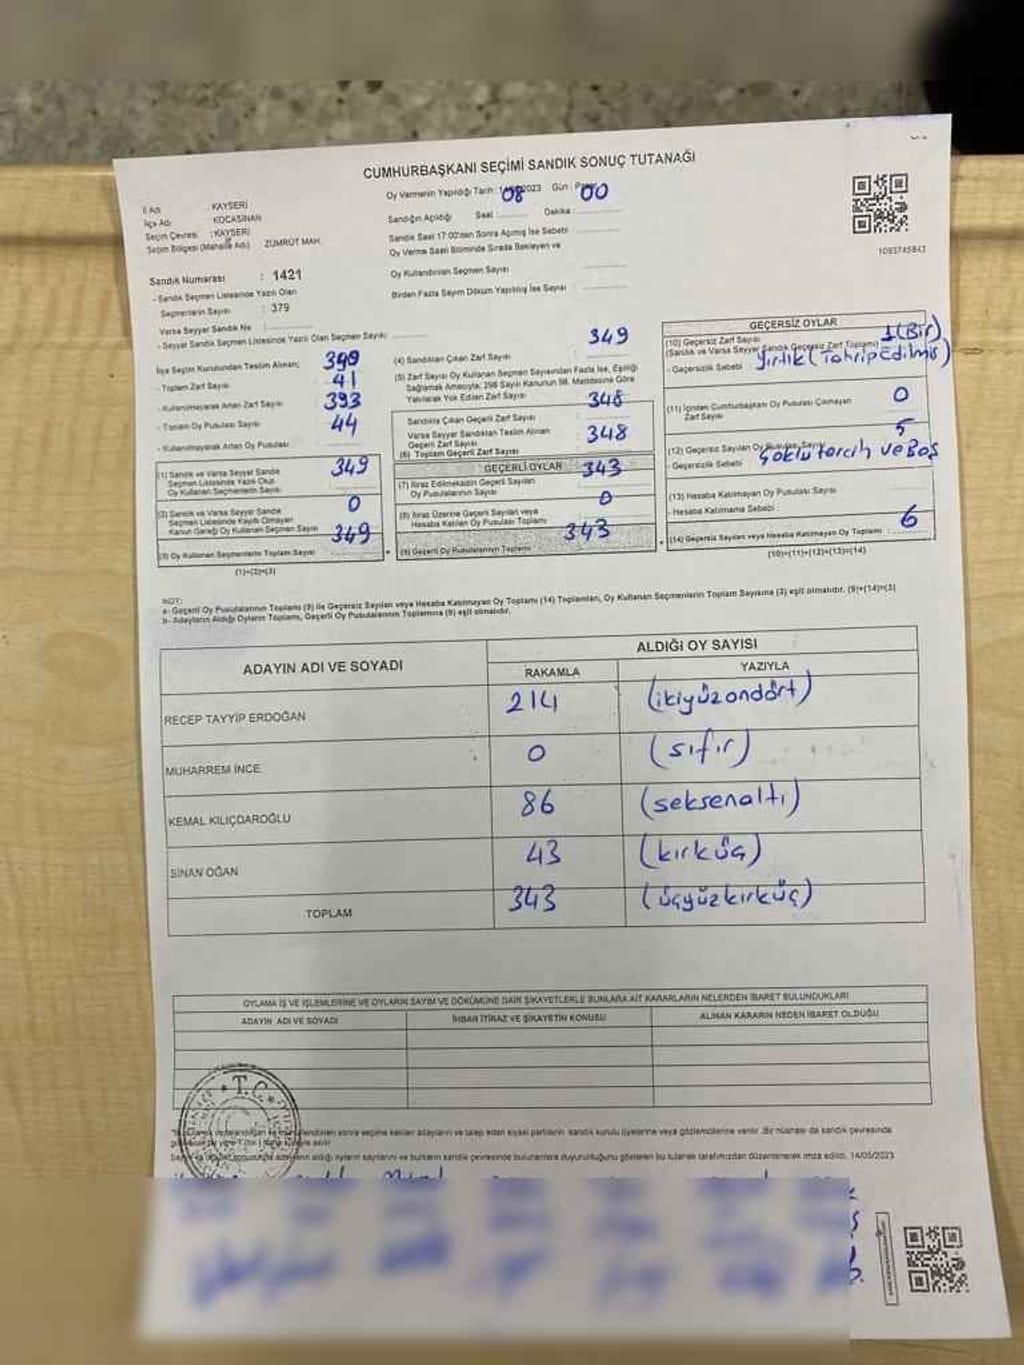 CUMHURBAŞKANI SEÇİMİ SANDIK SONUÇ TUTANAĞI
İl Adı : KAYSERİ
İlçe Adı : KOCASİNAN
Seçim Çevresi : KAYSERİ
Seçim Bölgesi (Mahalle Adı) ZÜMRÜT MAH.
Sandık Numarası : 1421
- Sandık Seçmen Listesinde Yazılı Olan
Seçmenlerin Sayısı : 379
Varsa Seyyar Sandık No :
- Seyyar Sandık Seçmen Listesinde Yazılı Olan Seçmen Sayısı :
Oy Vermenin Yapıldığı Tarih : 2023 Gün :
08 00
Sandığın Açıldığı Saat : Dakika :
Sandık Saat 17:00'den Sonra Açılmış İse Sebebi :
Oy Verme Saati Bitiminde Sırada Bekleyen ve
Oy Kullandırılan Seçmen Sayısı
Birden Fazla Sayım Döküm Yapılmış İse Sayısı :
1093745843
İlçe Seçim Kurulundan Teslim Alınan;
- Toplam Zarf Sayısı :
- Kullanılmayarak Artan Zarf Sayısı : 41
- Toplam Oy Pusulası : 393
- Kullanılmayarak Artan Oy Pusulası : 44
(1) Sandık ve Varsa Seyyar Sandık
Seçmen Listesinde Yazılı Olup
Oy Kullanan Seçmenlerin Sayısı : 349
(2) Sandık ve Varsa Seyyar Sandık
Seçmen Listesinde Kayıtlı Olmayan
Kanun Gereği Oy Kullanan Seçmen Sayısı : 0
(3) Oy Kullanan Seçmenlerin Toplam Sayısı : 349
(1)+(2)=(3)
(4) Sandıktan Çıkan Zarf Sayısı : 349
(5) Zarf Sayısı Oy Kullanan Seçmen Sayısından Fazla İse, Eşitliği
Sağlamak Amacıyla; 298 Sayılı Kanunun 98. Maddesine Göre
Yakılarak Yok Edilen Zarf Sayısı :
Sandıkta Çıkan Geçerli Zarf Sayısı : 348
Varsa Seyyar Sandıktan Teslim Alınan
Geçerli Zarf Sayısı :
(6) Toplam Geçerli Zarf Sayısı : 348
GEÇERLİ OYLAR
(7) İtiraz Edilmeksizin Geçerli Sayılan
Oy Pusulalarının Sayısı : 343
(8) İtiraz Üzerine Geçerli Sayılan veya
Hesaba Katılan Oy Pusulası Toplamı : 0
(9) Geçerli Oy Pusulalarının Toplamı : 343
GEÇERSİZ OYLAR
(10) Geçersiz Zarf Sayısı
(Sandık ve Varsa Seyyar Sandık Geçersiz Zarf Toplamı) 1 (Bir)
- Geçersizlik Sebebi : Yırtık (Tahrip Edilmiş)
(11) İçinden Cumhurbaşkanı Oy Pusulası Çıkmayan
Zarf Sayısı : 0
(12) Geçersiz Sayılan Oy Pusulası Sayısı 5
- Geçersizlik Sebebi : Çoklu tercih ve Boş
(13) Hesaba Katılmayan Oy Pusulası Sayısı :
- Hesaba Katılmama Sebebi :
(14) Geçersiz Sayılan veya Hesaba Katılmayan Oy Toplamı : 6
(10)+(11)+(12)+(13)=(14)
NOT:
a- Geçerli Oy Pusulalarının Toplamı (9) ile Geçersiz Sayılan veya Hesaba Katılmayan Oy Toplamı (14) Toplamları, Oy Kullanan Seçmenlerin Toplam Sayısına (3) eşit olmalıdır. (9)+(14)=(3)
b- Adayların Aldığı Oyların Toplamı, Geçerli Oy Pusulalarının Toplamına (9) eşit olmalıdır.
ADAYIN ADI VE SOYADI ALDIĞI OY SAYISI
RAKAMLA YAZIYLA
RECEP TAYYİP ERDOĞAN 214 (ikiyüzondört)
MUHARREM İNCE 0 (sıfır)
KEMAL KILIÇDAROĞLU 86 (seksenaltı)
SİNAN OĞAN 43 (kırküç)
TOPLAM 343 (üçyüzkırküç)
OYLAMA İŞ VE İŞLEMLERİNE VE OYLARIN SAYIM VE DÖKÜMÜNE DAİR ŞİKAYETLERLE BUNLARA AİT KARARLARIN NELERDEN İBARET BULUNDUKLARI
ADAYIN ADI VE SOYADI İHBAR İTİRAZ VE ŞİKAYETİN KONUSU ALINAN KARARIN NEDEN İBARET OLDUĞU
T.C.
sonra seçime katılan adayların ve talep eden siyasi partilerin sandık kurulu üyelerine veya gözlemcilerine verilir. Bir nüshası da sandık çevresinde
aldığı oyların sayılarını ve bunların sandık çevresinde bulunanlara duyurulduğunu gösteren bu tutanak tarafımızdan düzenlenerek imza edildi. 14/05/2023